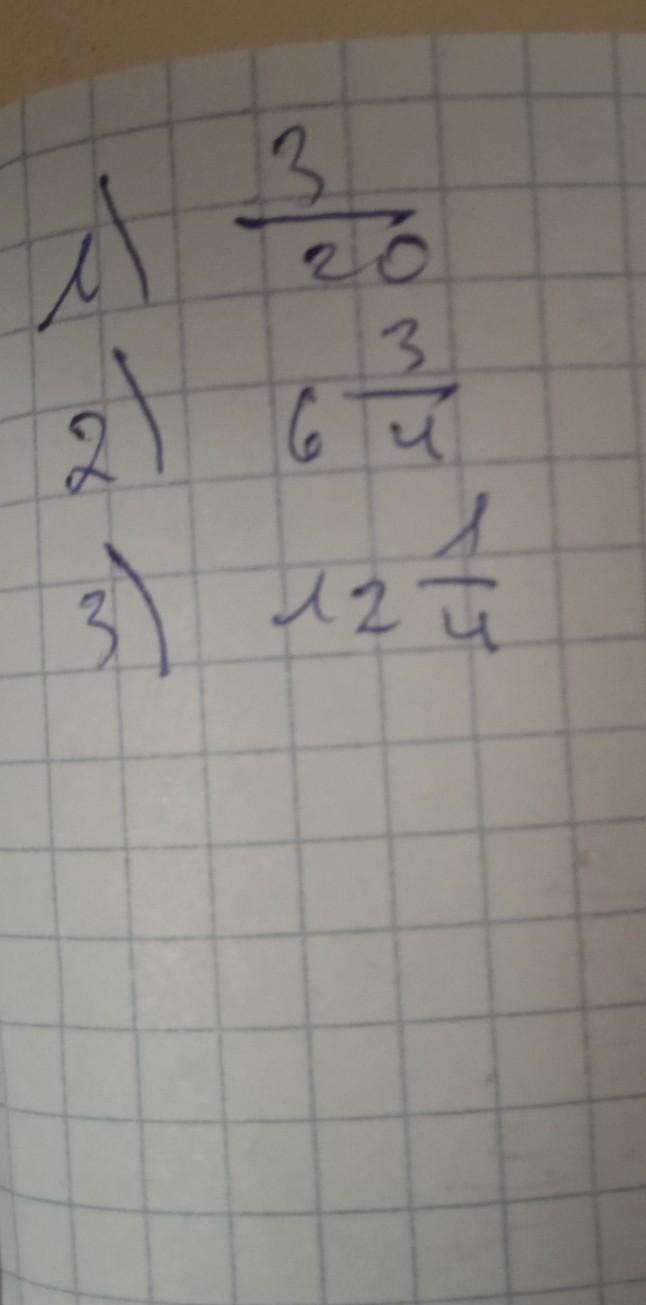 1) 3/20
2) 6 3/4
3) 12 1/4